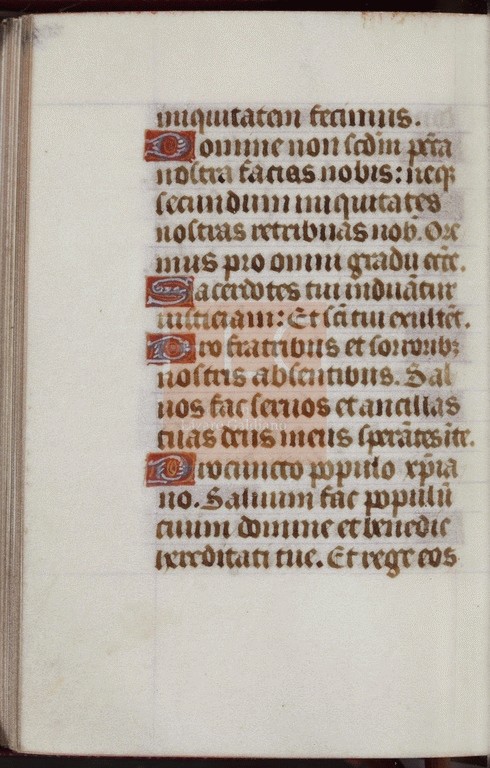 iniquitatem fecimus.
Domine non scdm pctā
nostra facias nobis: neqꝫ
secundum iniquitates
nostras retribuas nob. Ore
mus pro omni gradu ecte.
Sacerdotes tui induātur
iusticiam: Et sci tui exultēt.
Pro fratribus et sororibꝫ
nostris absentibus. Sal
uos fac seruos et ancillas
tuas deus meus sperātes ite.
Lázaro Galdiano
Pro cuncto populo xp̄ia
no. Saluum fac populū
tuum domine et benedic
hereditati tue. Et rege eos